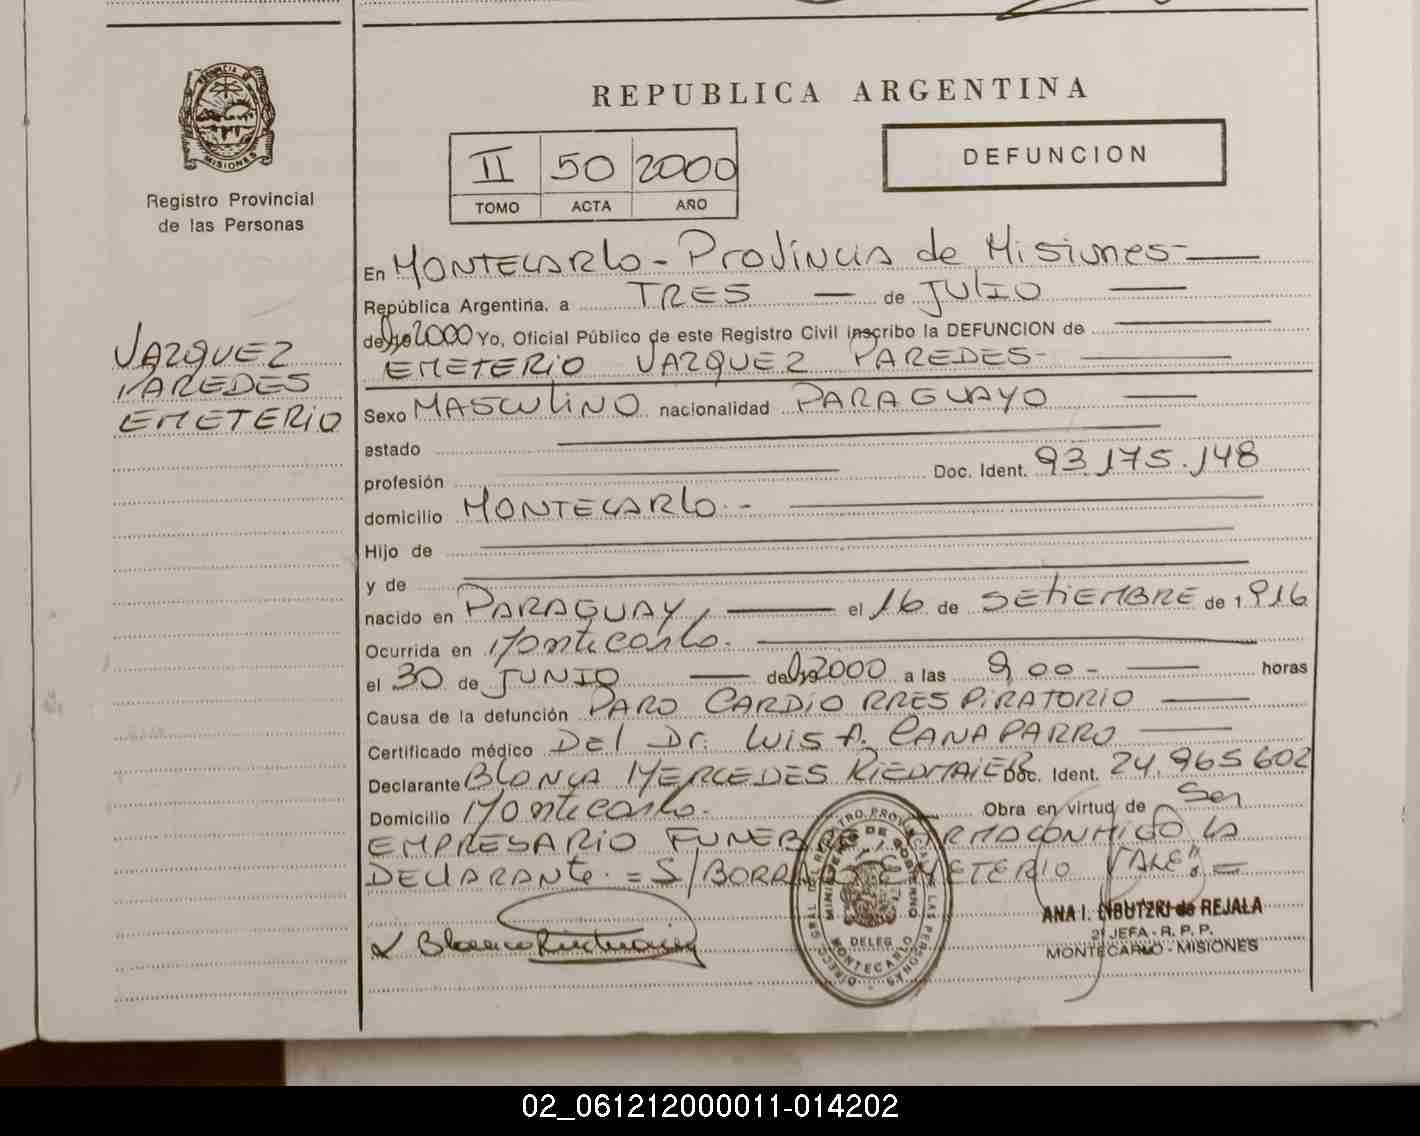 PROVINCIA DE
MISIONES
Registro Provincial
de las Personas
VAZQUEZ
PAREDES
EMETERIO
REPUBLICA ARGENTINA
II 50 2000
TOMO ACTA AÑO
DEFUNCION
En MONTECARLO - PROVINCIA de MISIONES -
República Argentina, a TRES de JULIO
de 2000 Yo, Oficial Público de este Registro Civil inscribo la DEFUNCION de
EMETERIO VAZQUEZ PAREDES -
Sexo MASCULINO nacionalidad PARAGUAYO
estado
profesión Doc. Ident. 93.175.148
domicilio MONTECARLO. -
Hijo de
y de
nacido en PARAGUAY, el 16 de SETIEMBRE de 1.916
Ocurrida en Montecarlo.
el 30 de JUNIO de 2000 a las 9,00 - horas
Causa de la defunción PARO CARDIO RRESPIRATORIO
Certificado médico DEL Dr. LUIS A. CANAPARRO
Declarante BLANCA MERCEDES RIEDMAIER Doc. Ident. 24.965.602
Domicilio Montecarlo. Obra en virtud de Ser
EMPRESARIO FUNEBRE, FIRMA CONMIGO LA
DECLARANTE. = S/BORRADO EMETERIO "VALE". =
MINISTERIO DE GOBIERNO
DELEG.
MONTECARLO
ANA I. LIBUTZKI de REJALA
2ª JEFA - R. P. P.
MONTECARLO - MISIONES
02_061212000011-014202